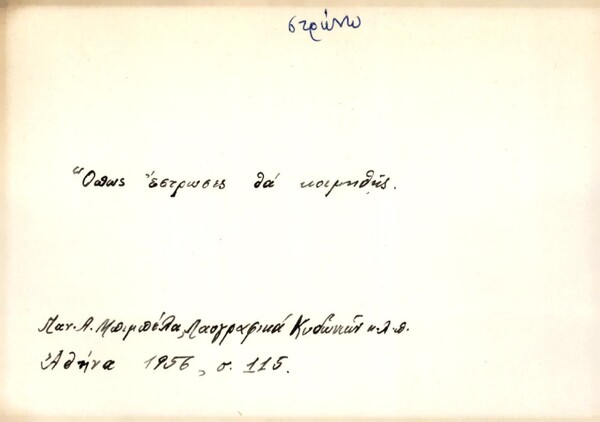 στρώνω
Ὅπως ἔστρωσες θά κοιμηθῇς.
Παν. Α. Μπιμπέλα, Λαογραφικά Κυδωνιῶν κ.λ.π.
Ἀθήνα 1956, σ. 115.